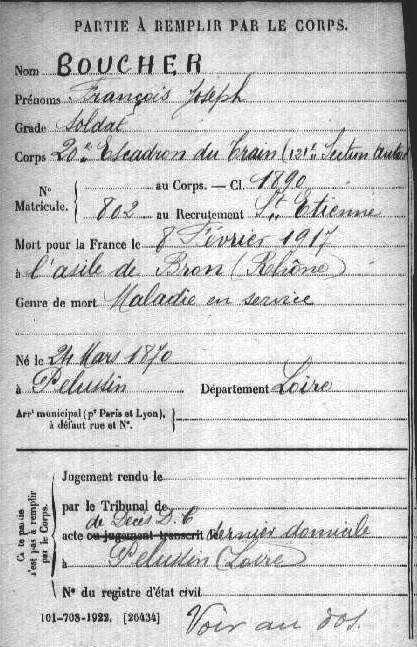 PARTIE À REMPLIR PAR LE CORPS.
Nom BOUCHER
Prénoms François Joseph
Grade Soldat
Corps 20e Escadron du Train (121e Section Autos)
N° Matricule. { au Corps. — Cl. 1890
802 au Recrutement St Etienne
Mort pour la France le 8 Février 1917
à l'asile de Bron (Rhône)
Genre de mort Maladie en service
Né le 24 Mars 1870
à Pelussin Département Loire
Arrt municipal (pr Paris et Lyon),
à défaut rue et N°.
Cette partie
n'est pas à remplir
par le Corps.
Jugement rendu le
par le Tribunal de
de Décès D.C
acte ou jugement transcrit Dernier domicile
à Pelussin (Loire)
N° du registre d'état civil
101-708-1922. [26434]
Voir au dos.